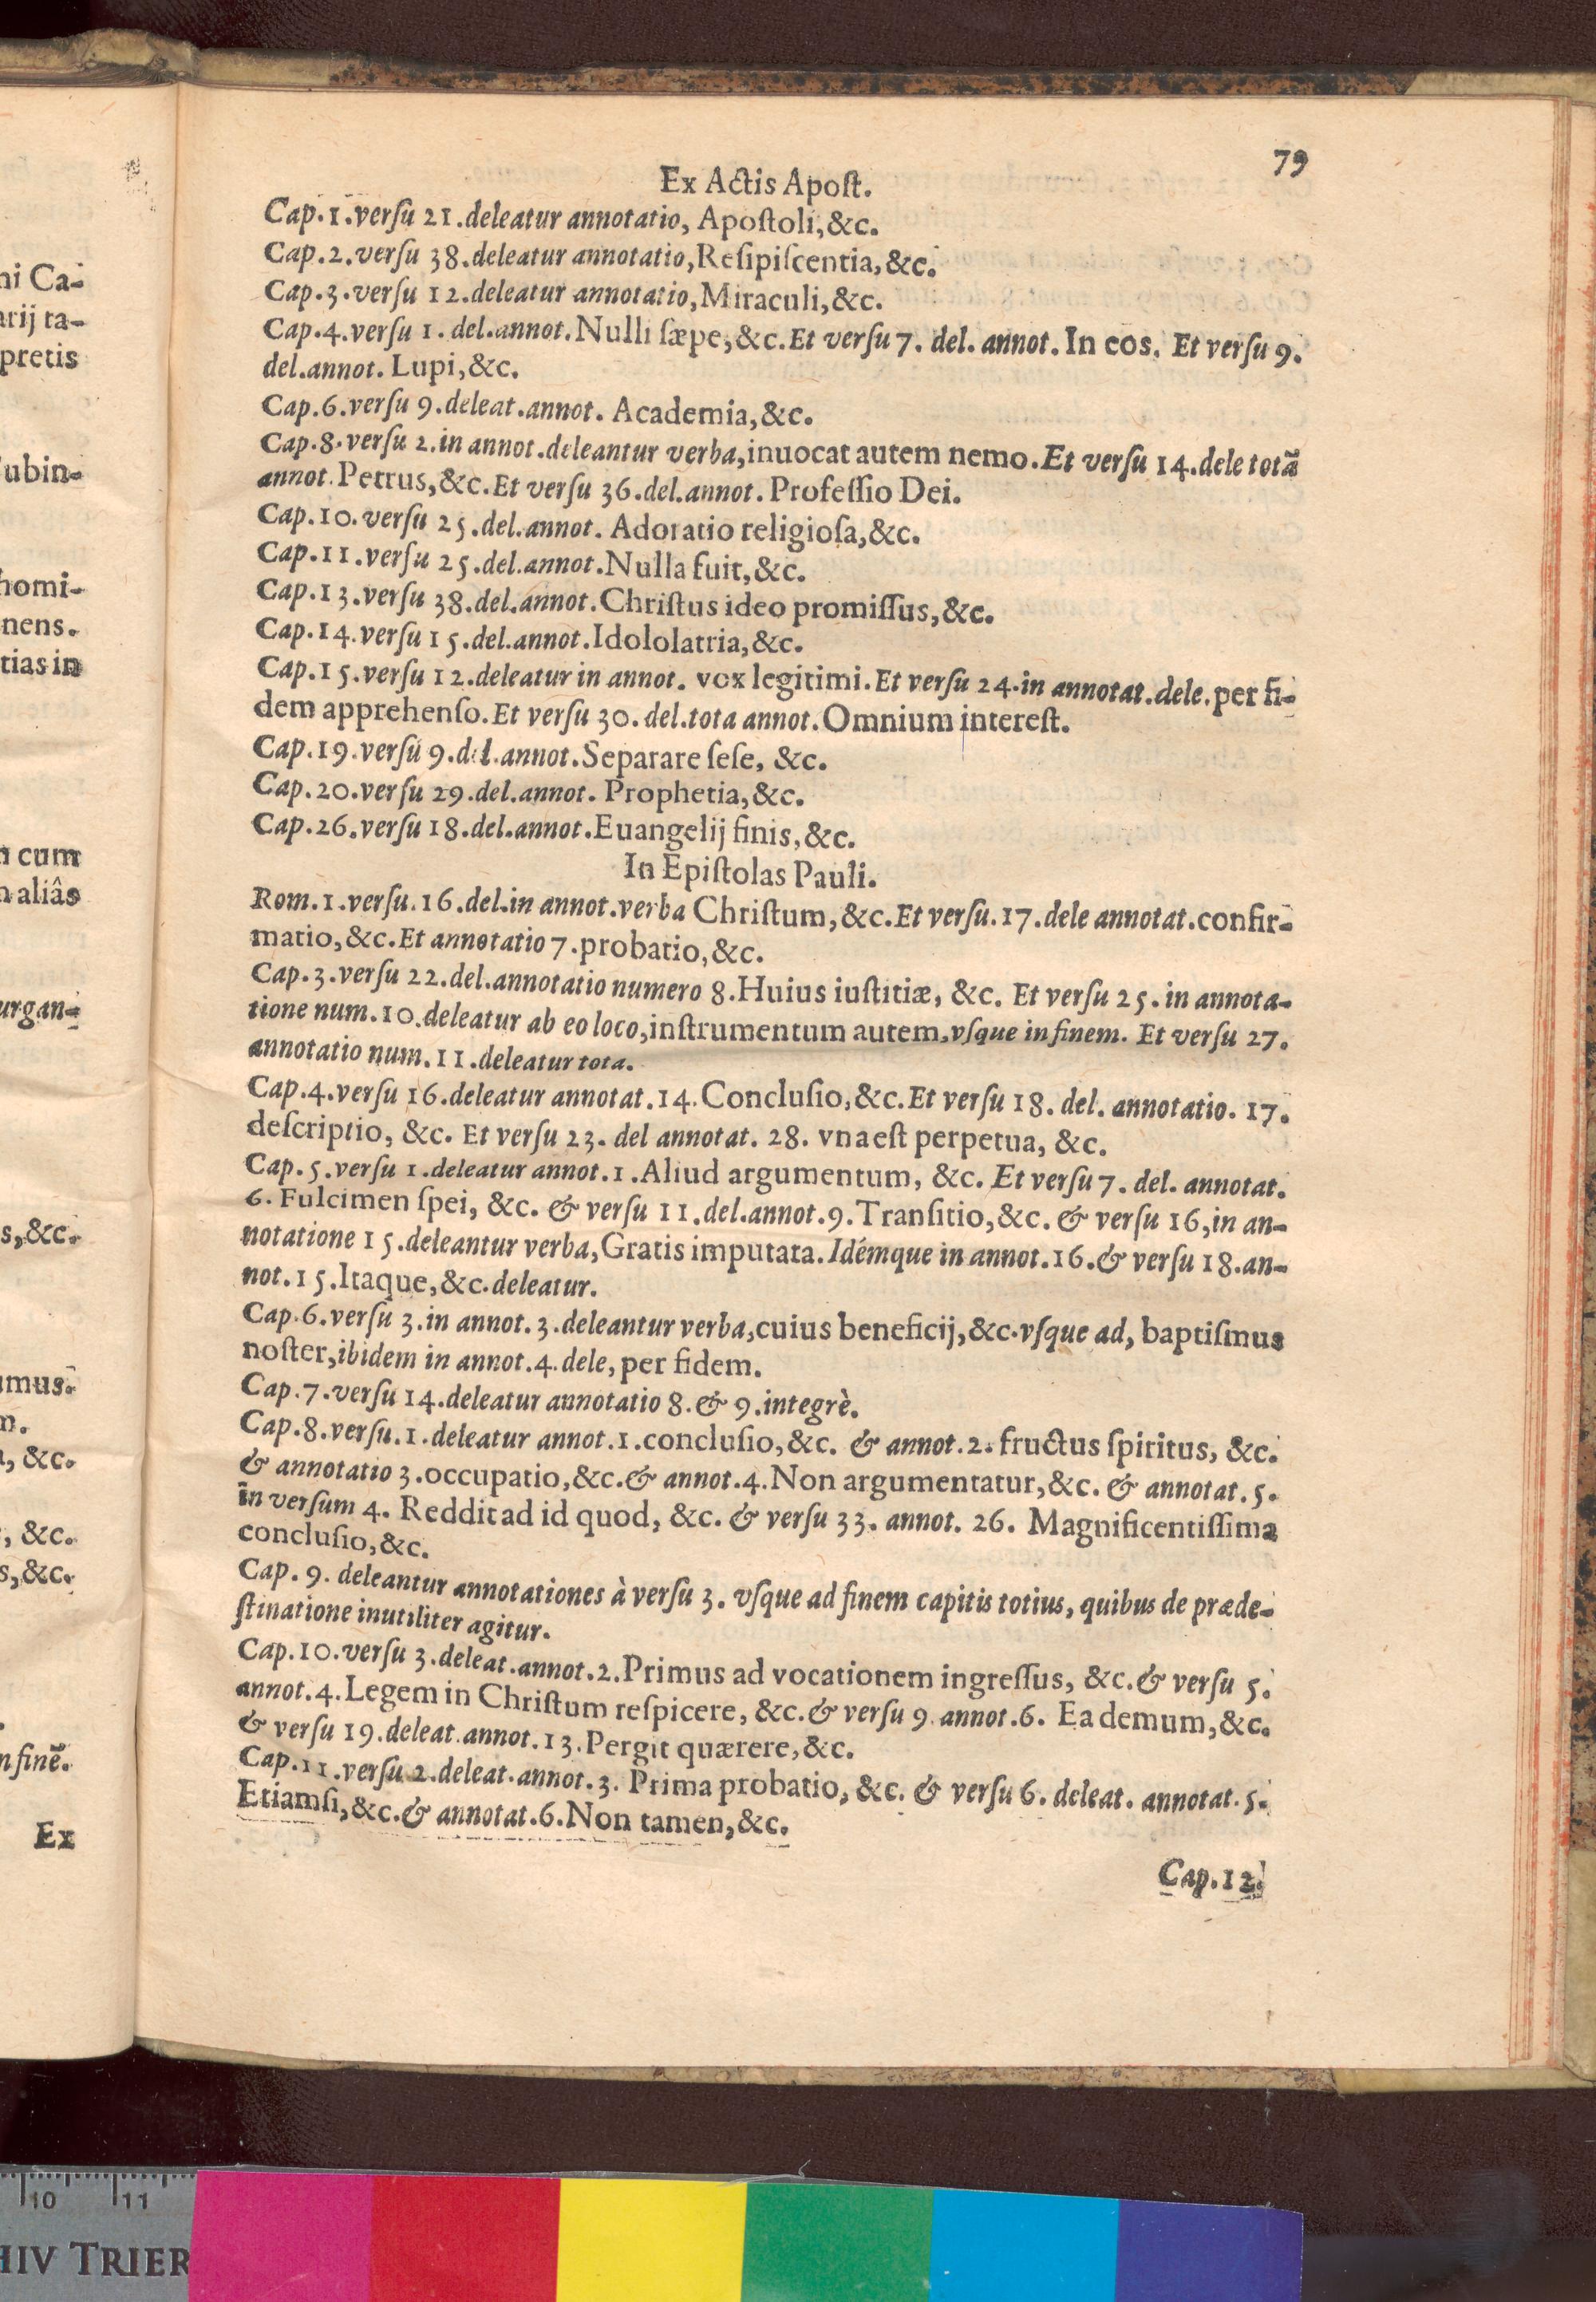 ni Ca-
arij ta-
pretis
ubin-
homi-
nens.
tias in
n cum
n aliâs
urgan-
s, &c.
umus.
m.
a, &c.
, &c.
s, &c.
n finẽ.
Ex
79
Ex Actis Apoſt.
Cap.1.verſu 21.deleatur annotatio, Apoſtoli,&c.
Cap.2.verſu 38.deleatur annotatio,Reſipiſcentia,&c.
Cap.3.verſu 12.deleatur annotatio,Miraculi,&c.
Cap.4.verſu 1. del.annot.Nulli ſæpe,&c.Et verſu 7. del. annot.In eos. Et verſu 9.
del.annot. Lupi,&c.
Cap.6.verſu 9.deleat.annot. Academia,&c.
Cap.8.verſu 2.in annot.deleantur verba,inuocat autem nemo.Et verſu 14.dele totã
annot.Petrus,&c.Et verſu 36.del.annot.Profeſſio Dei.
Cap.10.verſu 25.del.annot. Adoratio religioſa,&c.
Cap.11.verſu 25.del.annot.Nulla fuit,&c.
Cap.13.verſu 38.del.annot.Chriſtus ideo promiſſus,&c.
Cap.14.verſu 15.del.annot.Idololatria,&c.
Cap.15.verſu 12.deleatur in annot. vox legitimi.Et verſu 24.in annotat.dele.per fi-
dem apprehenſo.Et verſu 30. del.tota annot.Omnium intereſt.
Cap.19.verſu 9.del.annot.Separare ſeſe, &c.
Cap.20.verſu 29.del.annot. Prophetia,&c.
Cap.26.verſu 18.del.annot.Euangelij finis,&c.
In Epiſtolas Pauli.
Rom.1.verſu.16.del.in annot.verba Chriſtum,&c.Et verſu.17.dele annotat.confir-
matio,&c.Et annotatio 7.probatio,&c.
Cap.3.verſu 22.del.annotatio numero 8.Huius iuſtitiæ, &c. Et verſu 25.in annota-
tione num.10.deleatur ab eo loco,inſtrumentum autem,vſque in finem. Et verſu 27.
annotatio num.11.deleatur tota.
Cap.4.verſu 16.deleatur annotat.14.Concluſio,&c.Et verſu 18. del. annotatio. 17.
deſcriptio, &c. Et verſu 23. del annotat. 28. vna eſt perpetua, &c.
Cap.5.verſu 1.deleatur annot.1.Aliud argumentum, &c. Et verſu 7. del. annotat.
6. Fulcimen ſpei, &c. & verſu 11.del.annot.9.Tranſitio,&c. & verſu 16,in an-
notatione 15.deleantur verba,Gratis imputata.Idémque in annot.16.& verſu 18.an-
not.15.Itaque,&c.deleatur.
Cap.6.verſu 3.in annot.3.deleantur verba,cuius beneficij,&c.vſque ad, baptiſmus
noſter,ibidem in annot.4.dele,per fidem.
Cap.7.verſu 14.deleatur annotatio 8.& 9.integrè.
Cap.8.verſu.1.deleatur annot.1.concluſio,&c. & annot.2. fructus ſpiritus, &c.
& annotatio 3.occupatio,&c.& annot.4.Non argumentatur,&c. & annotat.5.
in verſum 4. Reddit ad id quod, &c. & verſu 33. annot. 26. Magnificentiſſima
concluſio,&c.
Cap. 9. deleantur annotationes à verſu 3. vſque ad finem capitis totius, quibus de præde-
ſtinatione inutiliter agitur.
Cap.10.verſu 3.deleat.annot.2.Primus ad vocationem ingreſſus, &c.& verſu 5.
annot.4.Legem in Chriſtum reſpicere, &c.& verſu 9.annot.6. Ea demum,&c.
& verſu 19.deleat.annot.13.Pergit quærere,&c.
Cap.11.verſu 2.deleat.annot.3. Prima probatio, &c. & verſu 6. deleat. annotat.5.
Etiamſi,&c.& annotat.6.Non tamen,&c.
Cap.12.
10 11
HIV TRIER